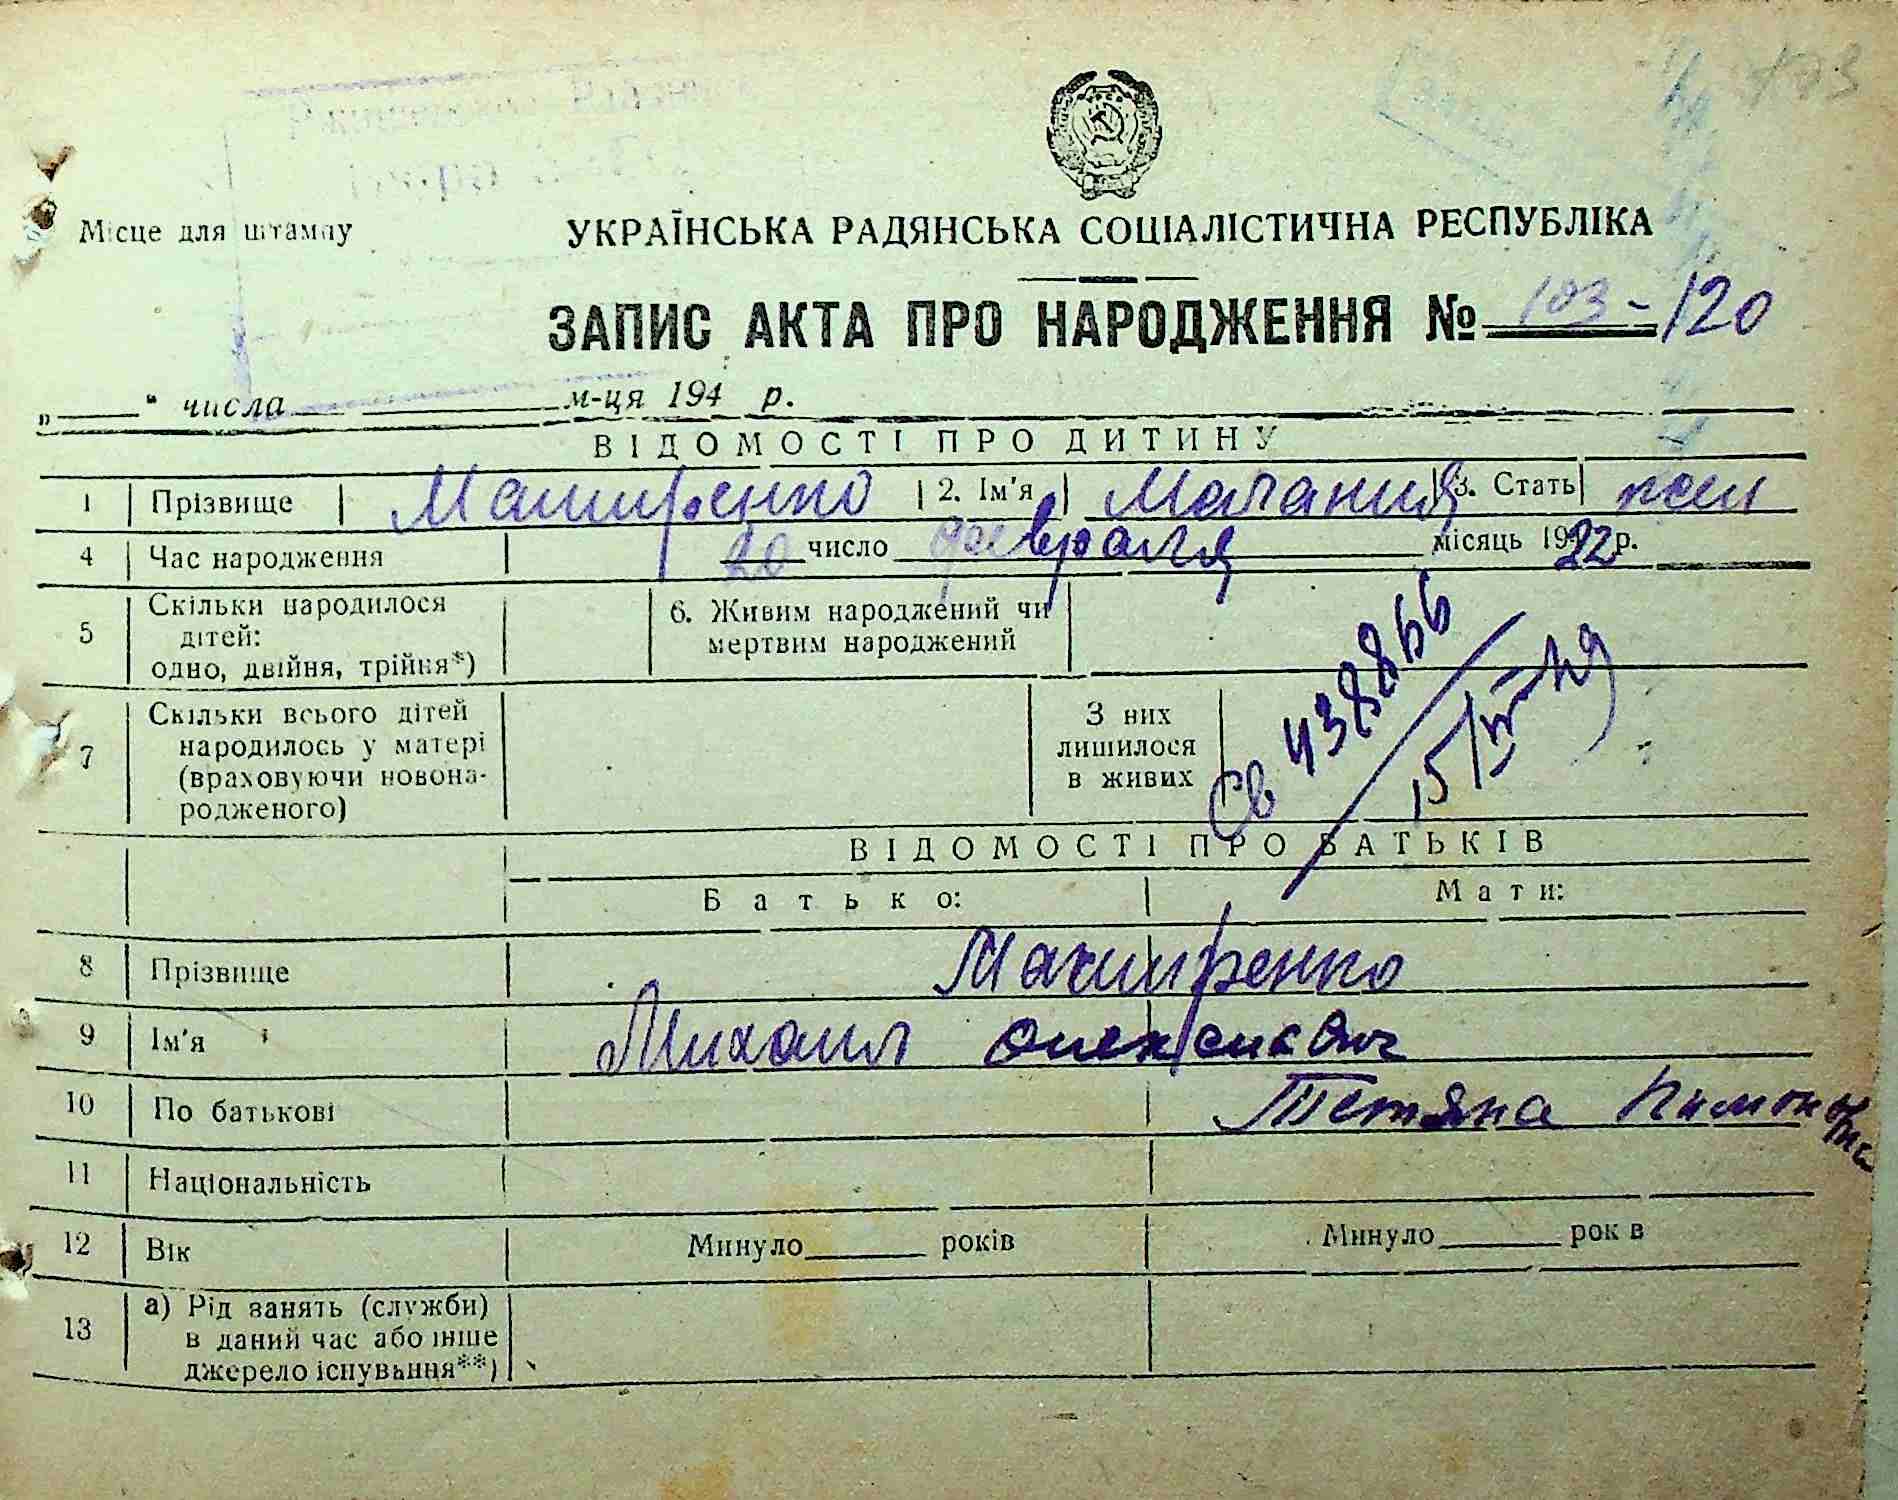 103
Місце для штампу
УКРАЇНСЬКА РАДЯНСЬКА СОЦІАЛІСТИЧНА РЕСПУБЛІКА
ЗАПИС АКТА ПРО НАРОДЖЕННЯ № 103-120
„ “ числа м-ця 194 р.
ВІДОМОСТІ ПРО ДИТИНУ
1 Прізвище 2. Ім'я 3. Стать жен
4 Час народження 20 число февраля місяць 1922 р.
5 Скільки народилося дітей: одно, двійня, трійня*) 6. Живим народжений чи мертвим народжений
7 Скільки всього дітей народилось у матері (враховуючи новонародженого) З них лишилося в живих
Св 438866
ВІДОМОСТІ ПРО БАТЬКІВ
Батько: Мати:
8 Прізвище
9 Ім'я Михаил
10 По батькові Тетяна
11 Національність
12 Вік Минуло років Минуло років
13 а) Рід занять (служби) в даний час або інше джерело існування**)